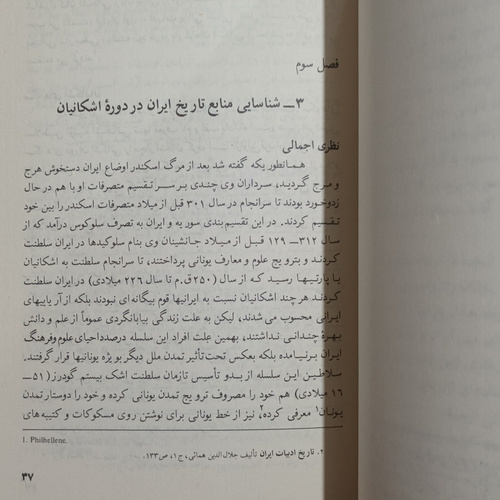 فصل سوم
۳ــ شناسایی منابع تاریخ ایران در دورهٔ اشکانیان
نظری اجمالی
همانطور یکه گفته شد بعد از مرگ اسکندر اوضاع ایران دستخوش هرج
و مرج گردید، سرداران وی چندی بر سر تقسیم متصرفات او با هم در حال
زدوخورد بودند تا سرانجام در سال ۳۰۱ قبل از میلاد متصرفات اسکندر را بین خود
تقسیم کردند. در این تقسیم‌بندی سوریه و ایران به تصرف سلوکوس درآمد که از
سال ۳۱۲ــ ۱۲۹ قبل از میلاد جانشینان وی بنام سلوکیدها در ایران سلطنت
کردند و بترویج علوم و معارف یونانی پرداختند، تا سرانجام سلطنت به اشکانیان
یا پارتیها رسید که از سال (۲۵۰ق.م تا سال ۲۲۶ میلادی) در ایران سلطنت
کردند هر چند اشکانیان نسبت به ایرانیها قوم بیگانه‌ای نبودند بلکه از آریاییهای
ایرانی محسوب می‌شدند، لیکن به علت زندگی بیابانگردی عموماً از علم و دانش
بهرهٔ چندانی نداشتند، بهمین علت افراد این سلسله درصدد احیای علوم وفرهنگ
ایران برنیامده بلکه بعکس تحت‌تأثیر تمدن ملل دیگر بویژه یونانیها قرار گرفتند.
سلاطین این سلسله از بدو تأسیس تازمان سلطنت اشک بیستم گودرز (۵۱ــ
۱۶ میلادی) هم خود را مصروف ترویج تمدن یونانی کرده و خود را دوستار تمدن
یونان۱ معرفی کرده۲، نیز از خط یونانی برای نوشتن روی مسکوکات و کتیبه‌های
1. Philhellene.
۲. تاریخ ادبیات ایران تألیف جلال‌الدین همائی، ج۱، ص۱۳۳.
۳۷